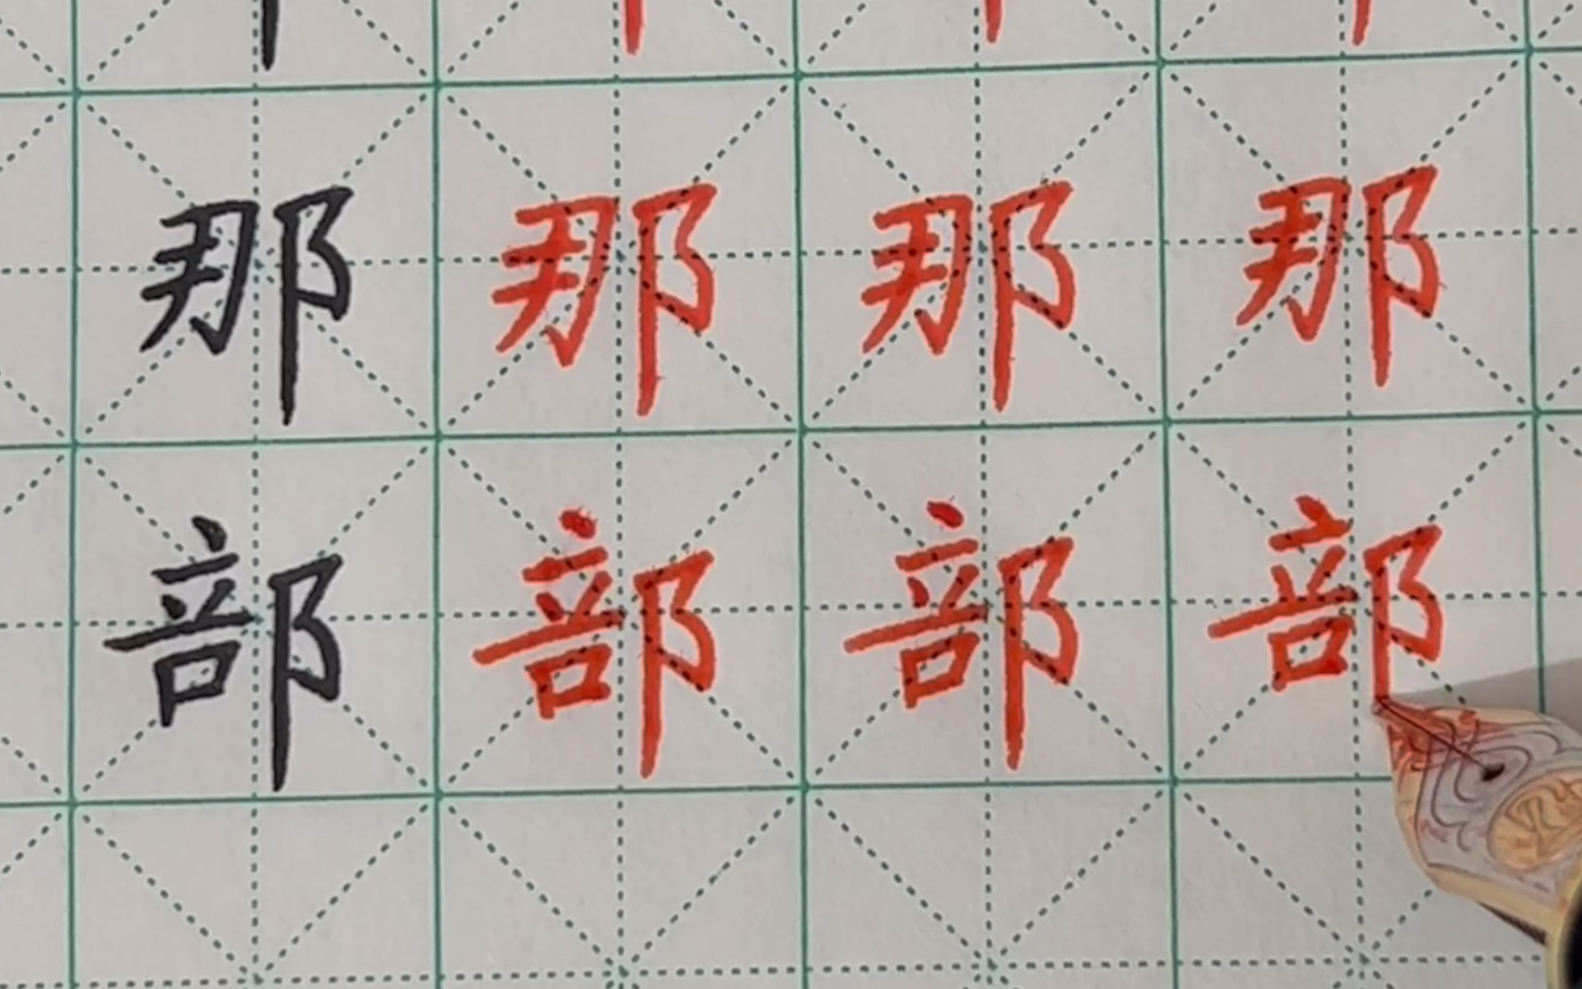 那那那那
部部部部